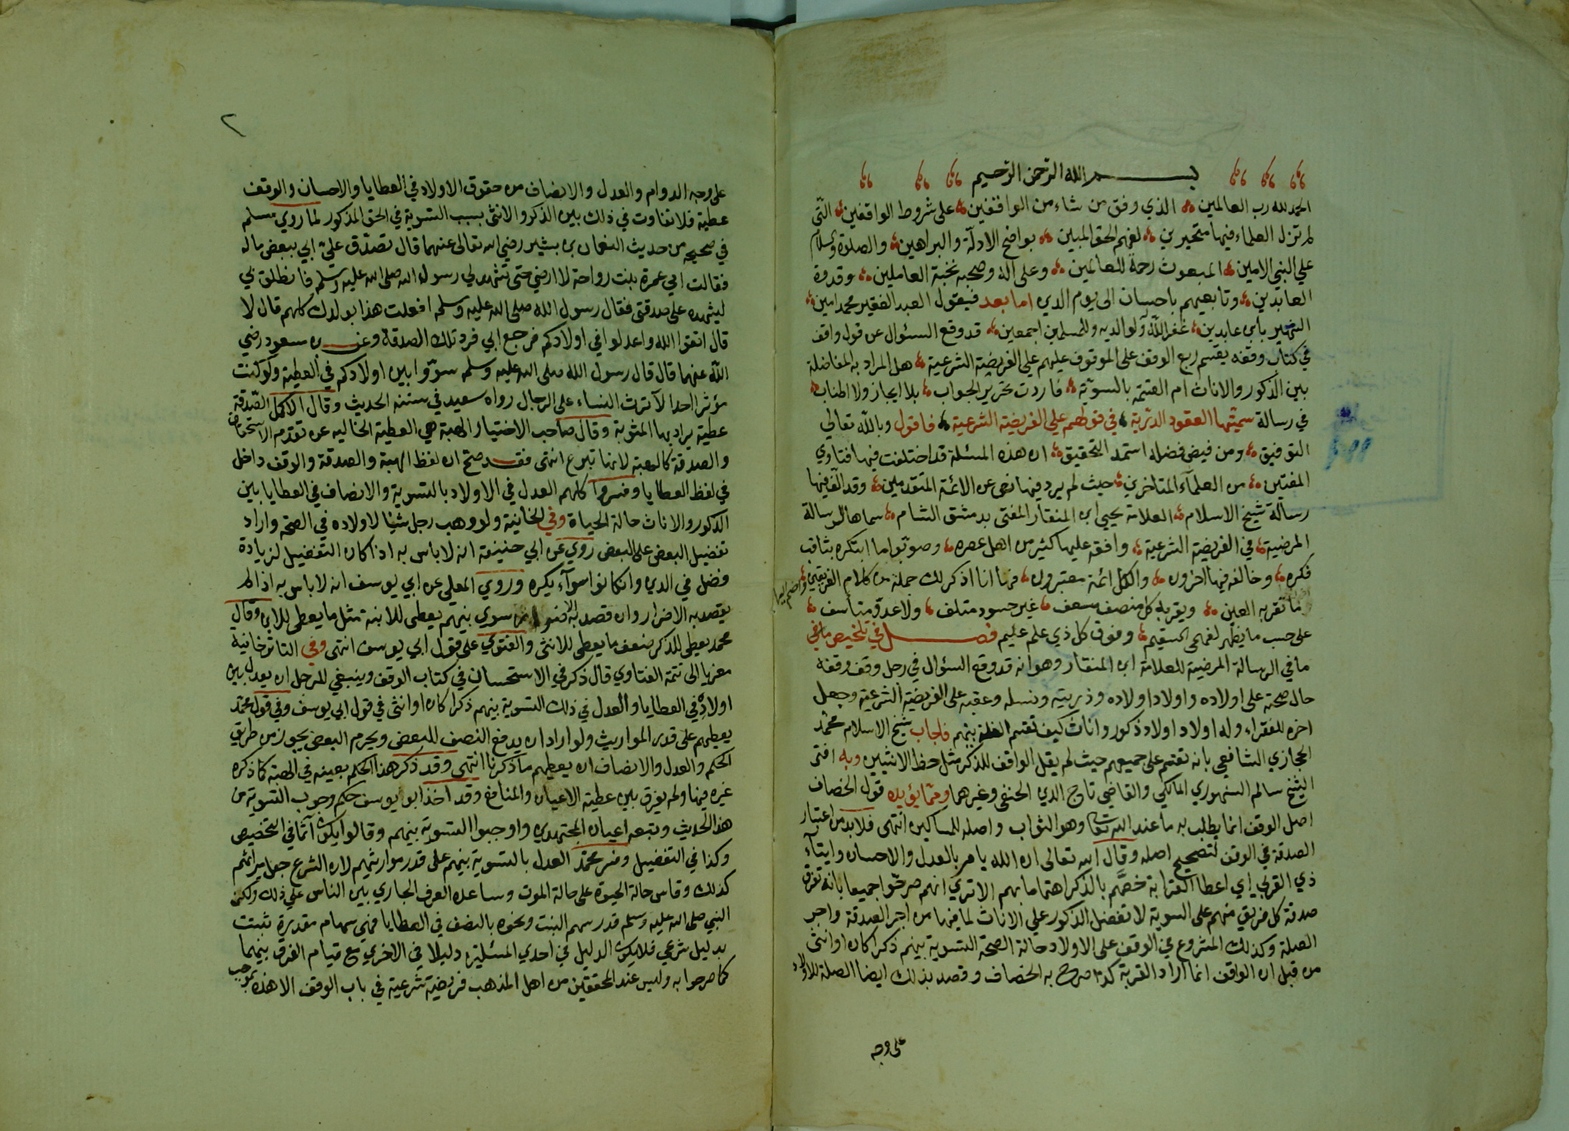 بسم الله الرحمن الرحيم
الحمد لله رب العالمين الذي وفق من شاء من الواقفين على شروط الواقفين التي
لم تزل العلماء فيها متحيرين لفهم الحق المبين بواضح الادلة والبراهين والصلاة والسلام
على النبي الامين المبعوث رحمة للعالمين وعلى آله وصحبه نخبة العاملين وقدوة
العابدين وتابعيهم باحسان الى يوم الدين اما بعد فيقول العبد الفقير محمد امين
الشهير بابن عابدين غفر الله له ولوالديه والمسلمين اجمعين قد وقع السؤال عن قول واقف
في كتاب وقفه يقسم ريع الوقف على الموقوف عليهم على الفريضة الشرعية هل المراد به المفاضلة
بين الذكور والاناث ام القسمة بالسوية فاردت تحرير الجواب بلا ايجاز ولا اطناب
في رسالة سميتها العقود الدرية في قولهم على الفريضة الشرعية فاقول وبالله تعالى
التوفيق ومن فيض فضله استمد التحقيق ان هذه المسئلة قد اختلفت فيها فتاوى
المفتين من العلماء المتاخرين حيث لم يرد فيها نص عن الائمة المتقدمين وقد الف فيها
رسالة شيخ الاسلام العلامة يحيى ابن المنقار المفتي بدمشق الشام سماها الرسالة
المرضية في الفريضة الشرعية وافق عليها كثير من اهل عصره وصوبوا ما ابتكره بثاقب
فكره وخالفه فيها اخرون والكل ائمة معتبرون فها انا اذكر لك جملة من كلام الفريقين
ما تقر به العين ويقر به كل منصف مسعف غير حسود متلف ولا عدو متاسف
على حسب ما يظهر لفهمي السقيم وفوق كل ذي علم عليم فصل في تلخيص ما في
ما في الرسالة المرضية للعلامة ابن المنقار وهو انه قد وقع السؤال في رجل وقف وقفه
حال صحته على اولاده واولاد اولاده وذريته ونسله وعقبه على الفريضة الشرعية وجعل
اخره للفقراء وله اولاد اولاد ذكور واناث كيف تقسم الغلة بينهم فاجاب شيخ الاسلام محمد
الحجازي الشافعي بانه تقسم على جميعهم حيث لم يقل الواقف للذكر مثل حظ الانثيين وبه افتى
الشيخ سالم السنهوري المالكي والقاضي تاج الدين الحنفي وغيرهما ومما يؤيده قول الخصاف
اصل الوقف انما يطلب به ما عند الله تعالى وهو الثواب واصله للمساكين انتهى فلا بد من اعتبار
الصدقة في الوقف لتصحيح اصله وقال الله تعالى ان الله يامر بالعدل والاحسان وايتاء
ذي القربى اي اعطاء القرابة خصهم بالذكر اهتماما بهم الا ترى انهم صرحوا جميعا بانه تفرق
صدقة كل فريق منهم على السوية لا تفضل الذكور على الاناث لما فيها من اجر الصدقة واجر
الصلة وكذلك المشروع في الوقف على الاولاد حالة الصحة التسوية بينهم ذكرا كان او انثى
من قبل ان الواقف انما اراد القربة كما صرح به الخصاف وقصد بذلك ايضا الصلة للاولاد
على وجه
٢
على وجه الدوام والعدل والانصاف من حقوق الاولاد في العطايا والاحسان والوقف
عطية فلا تفاوت في ذلك بين الذكر والانثى بسبب التسوية في الحق المذكور لما روى مسلم
في صحيحه من حديث النعمان بن بشير رضي الله تعالى عنهما قال تصدق علي ابي ببعض ماله
فقالت امي عمرة بنت رواحة لا ارضى حتى تشهد لي رسول الله صلى الله عليه وسلم فانطلق بي
ليشهده على صدقتي فقال رسول الله صلى الله عليه وسلم افعلت هذا بولدك كلهم قال لا
قال اتقوا الله واعدلوا في اولادكم فرجع ابي فرد تلك الصدقة وعن ابن مسعود رضي
الله عنهما قال قال رسول الله صلى الله عليه وسلم سووا بين اولادكم في العطية ولو كنت
مؤثرا احدا لآثرت النساء على الرجال رواه سعيد في سننه الحديث وقال الاكمل الصدقة
عطية يراد بها المثوبة وقال صاحب الاختيار الهبة هي العطية الخالية عن تقدم الاستحقاق
والصدقة كالهبة لانها تبرع انتهى فقد صح ان لفظ الهبة والصدقة والوقف داخل
في لفظ العطايا وفسروا كلهم العدل في الاولاد بالتسوية والانصاف في العطايا بين
الذكور والاناث حالة الحياة وفي الخانية ولو وهب رجل شيئا لاولاده في الصحة واراد
تفضيل البعض على البعض روي عن ابي حنيفة انه لا باس به اذا كان التفضيل لزيادة
فضل في الدين وان كانوا سواء يكره وروى المعلى عن ابي يوسف انه لا باس به اذا لم
يقصد به الاضرار وان قصد به الاضرار سوى بينهم يعطي للابنة مثل ما يعطي للابن وقال
محمد يعطي للذكر ضعف ما يعطي للانثى والفتوى على قول ابي يوسف انتهى وفي التاترخانية
معزيا الى تتمة الفتاوى قال ذكر في الاستحسان في كتاب الوقف وينبغي للرجل ان يعدل بين
اولاده في العطايا والعدل في ذلك التسوية بينهم ذكرا كان او انثى في قول ابي يوسف وفي قول محمد
يعطيهم على قدر المواريث ولو اراد ان يدفع النصف للبعض ويحرم البعض يجوز من طريق
الحكم والعدل والانصاف ان يعطيهم ما ذكرنا انتهى وقد ذكر هذا الحكم بعينه في الهبة كما ذكره
غيره فيها ولم يفرق بين عطية الاعيان والمنافع وقد اخذ ابو يوسف حكم وجوب التسوية من
هذا الحديث وتبعه اعيان المجتهدين واوجبوا التسوية بينهم وقالوا يكون آثما في التخصيص
وكذا في التفضيل وفسر محمد العدل بالتسوية بينهم على قدر مواريثهم لان الشرع جعل ميراثهم
كذلك وقاس حالة الحيوة على حالة الموت وساعده العرف الجاري بين الناس على ذلك ولكن
النبي صلى الله عليه وسلم قدر سهم البنت ونحوه بالنصف في العطايا فهي سهام مقدرة تثبت
بدليل شرعي فلا يكون الدليل في احدى المسئلتين دليلا في الاخرى مع قيام الفرق بينهما
كما صرحوا به وليس عند المحققين من اهل المذهب فريضة شرعية في باب الوقف الا هذه بموجب